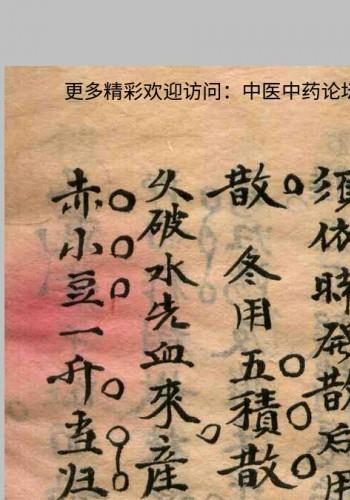 更多精彩欢迎访问：中医中药论坛
須依時發散后用
散 冬用五積散
头破水先血來產
赤小豆一升查归